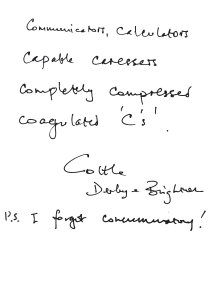 Communicators, Calculators
Capable caressers
Completely compressed
coagulated 'C's'.
Cottle
Derby + Brightner
P.S. I forgot consummatory!